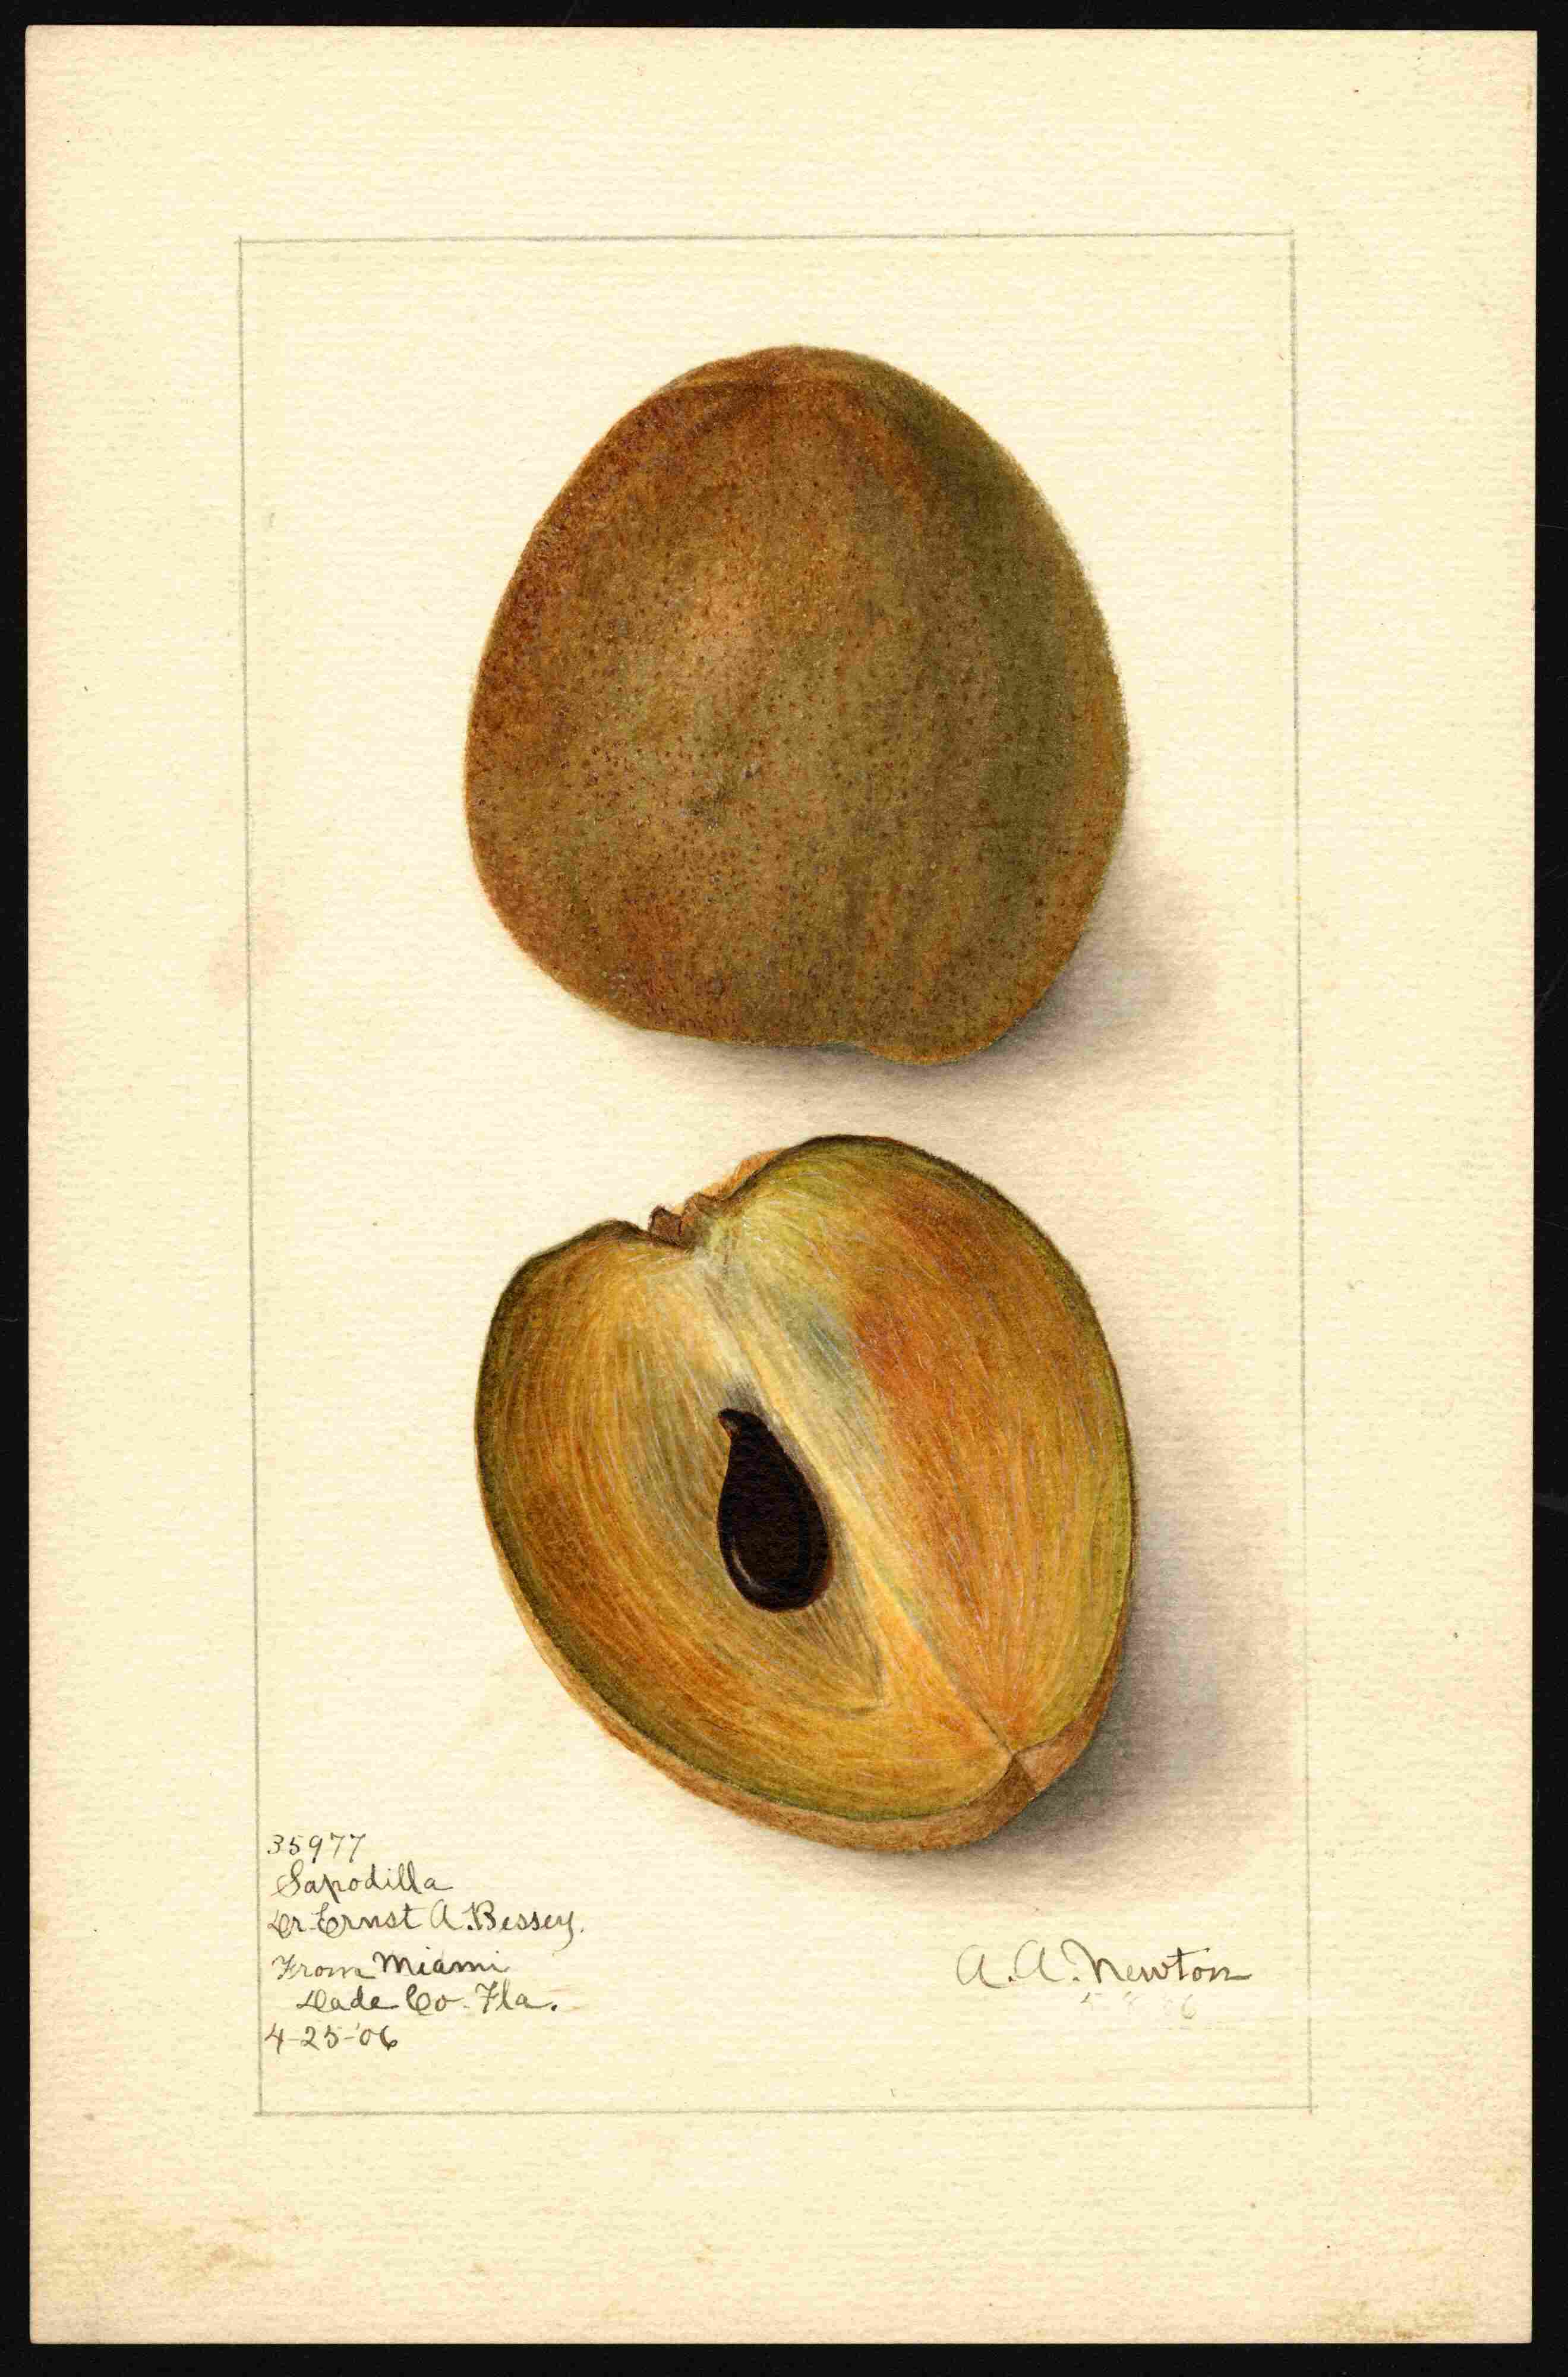 35977
Sapodilla
Dr. Ernst A. Bessey.
From Miami
Dade Co. Fla.
4-25-'06
A. A. Newton